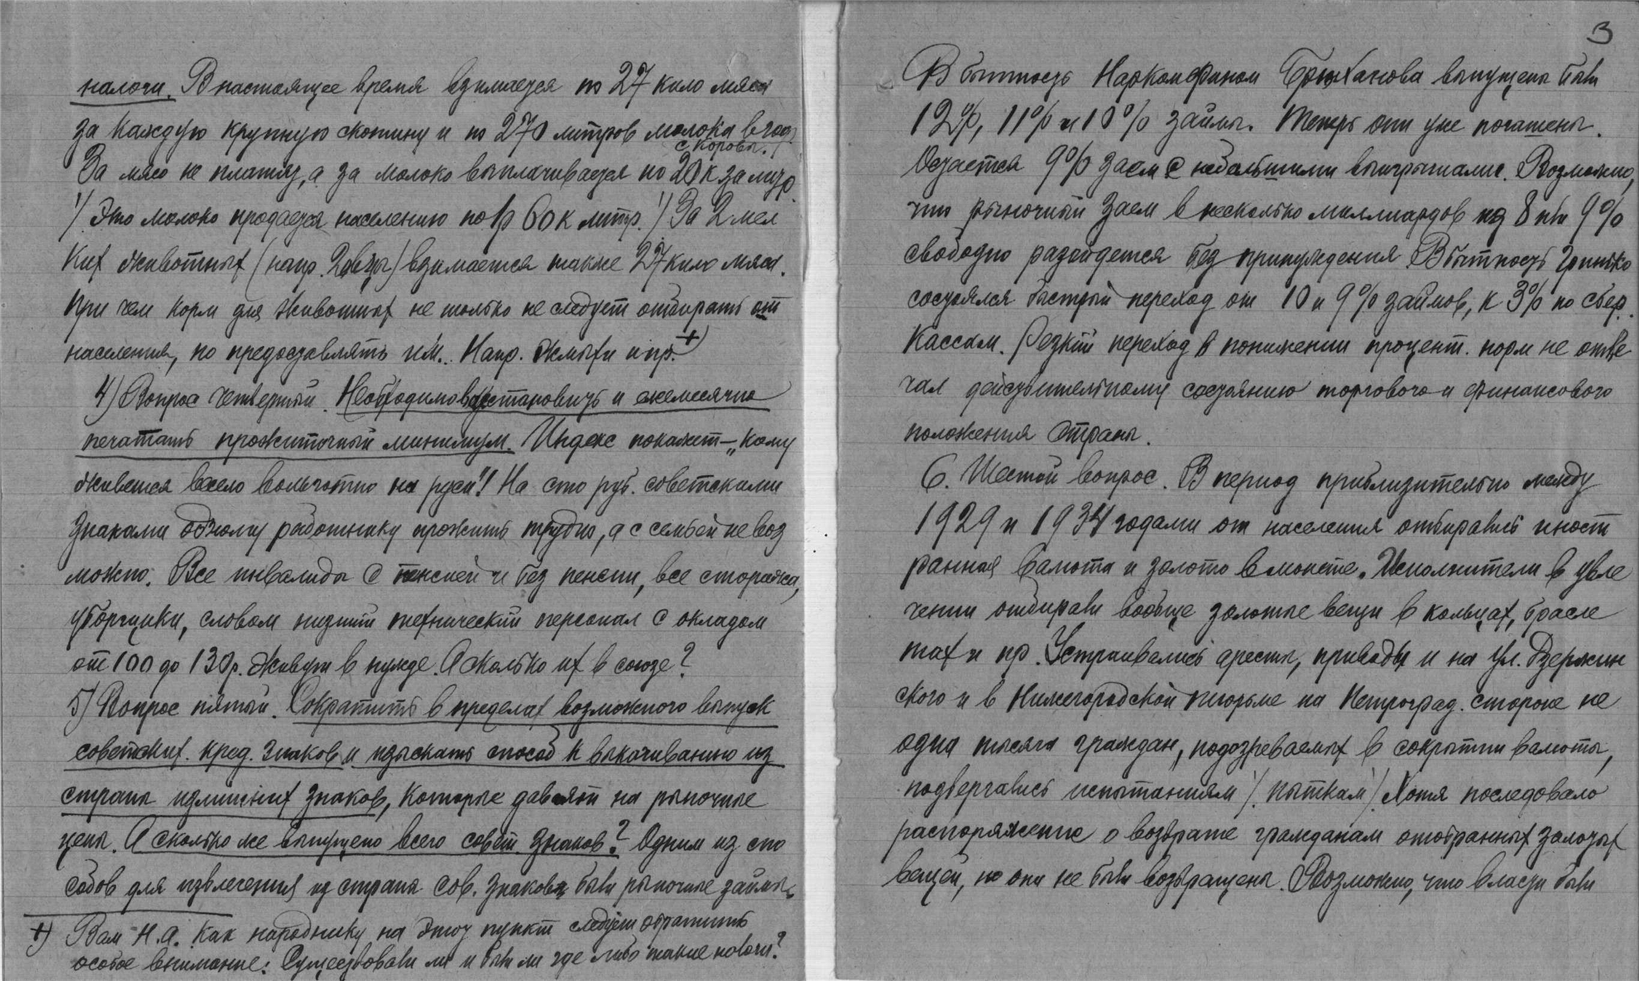 налоги. В настоящее время взимается по 27 кило мяса
за каждую крупную скотину и по 270 литров молока в год
с коровы.
За мясо не платят, а за молоко выплачивается по 20 к за литр.
/. Это молоко продается населению по 1р 60 к литр./ За 2 мел
ких животных (напр. 2 овцы) взимается также 27 кило мяса.
При чем корм для животных не только не следует отбирать от
населения, но предоставлять им. Напр. жмыхи и пр. +)
4) Вопрос четвертый. Необходимо установить и ежемесячно
печатать прожиточный минимум. Индекс покажет – „кому
живется весело вольготно на руси"! На сто руб. советскими
знаками одному работнику прожить трудно, а с семьей невоз
можно. Все инвалиды с пенсией и без пенсии, все сторожа,
уборщики, словом низший технический персонал с окладом
от 100 до 130 р. живут в нужде. А сколько их в союзе?
5) Вопрос пятый. Сократить в пределах возможного выпуск
советских. кред. знаков и изыскать способ к выкачиванию из
страны излишних знаков, которые давят на рыночные
цены. А сколько же выпущено всего совет знаков? Одним из спо
собов для извлечения из страны сов. знаков были рыночные займы.
+) Вам Н.А. как народнику на этот пункт следует обратить
особое внимание: Существовали ли и были ли где либо такие налоги?
3
В бытность Наркомфином Брюханова выпущены были
12%, 11% и 10% займы. Теперь они уже погашены.
Остается 9% заем с небольшими выигрышами. Возможно,
что рыночный заем в несколько миллиардов из 8 или 9%
свободно разойдется без принуждения. В бытность Гринько
состоялся быстрый переход от 10 и 9% займов, к 3% по сбер.
кассам. Резкий переход в понижении процент. норм не отве
чал действительному состоянию торгового и финансового
положения страны.
6. Шестой вопрос. В период приблизительно между
1929 и 1934 годами от населения отбирались иност
ранная валюта и золото в монете. Исполнители в увле
чении отбирали вообще золотые вещи в кольцах, брасле
тах и пр. Устраивались аресты, приводы и на ул. Дзержин
ского и в Нижегородской тюрьме на Петроград. стороне не
одна тысяча граждан, подозреваемых в сокрытии валюты,
подвергались испытаниям /. пыткам / Хотя последовало
распоряжение о возврате гражданам отобранных золотых
вещей, но они не были возвращены. Возможно, что власти были